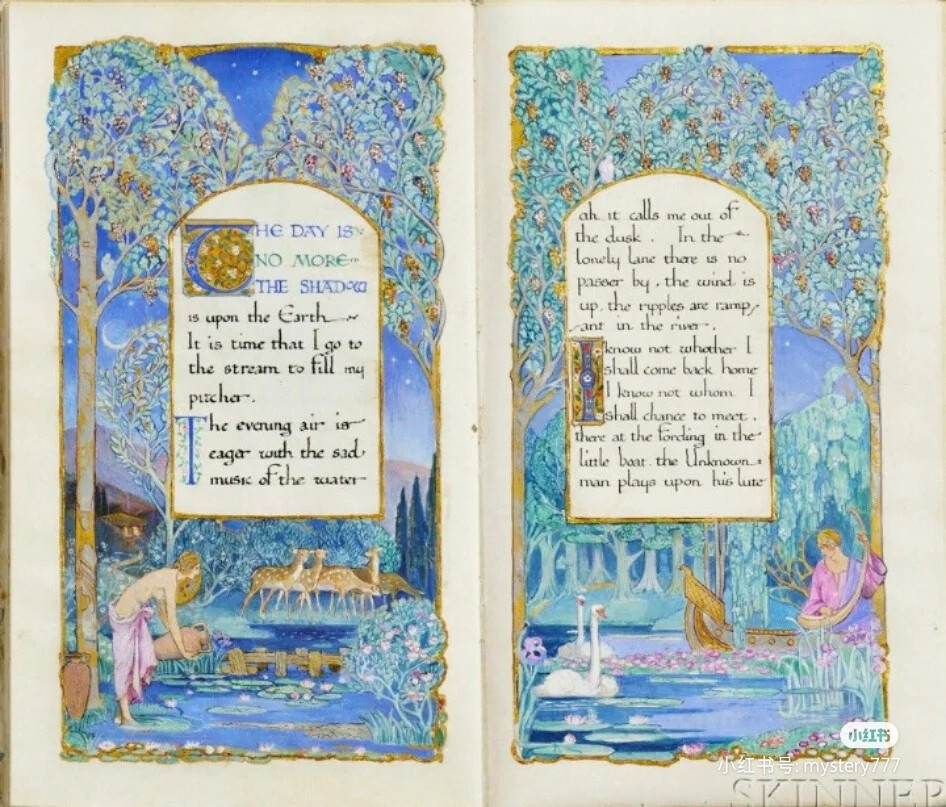 THE DAY IS
NO MORE
THE SHADOW
is upon the Earth
It is time that I go to
the stream to fill my
pitcher.
The evening air is
eager with the sad
music of the water
ah it calls me out of
the dusk. In the
lonely lane there is no
passer by, the wind is
up, the ripples are ramp,
ant in the river.
I know not whether I
shall come back home
I know not whom I
shall chance to meet.
there at the fording in the
little boat the Unknown
man plays upon his lute
小红书
小红书号: mystery777
SKINNER